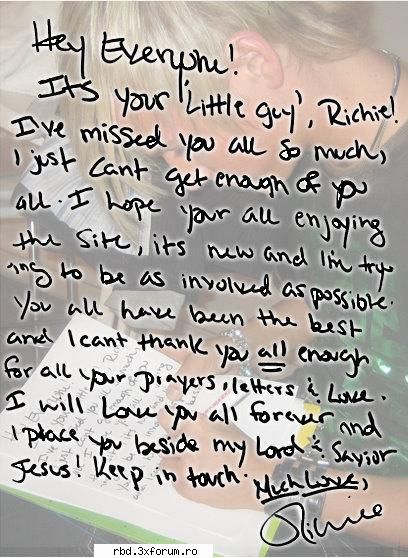 Hey Everyone!
It's your 'Little guy', Richie!
I've missed you all so much,
I just cant get enough of you
all. I hope your all enjoying
the site, its new and Im try-
ing to be as involved as possible.
You all have been the best
and I cant thank you all enough
for all your prayers, letters & Love.
I will Love you all forever and
I place you beside my Lord & Savior
Jesus! Keep in touch.
Much Love,
Richie
rbd.3xforum.ro